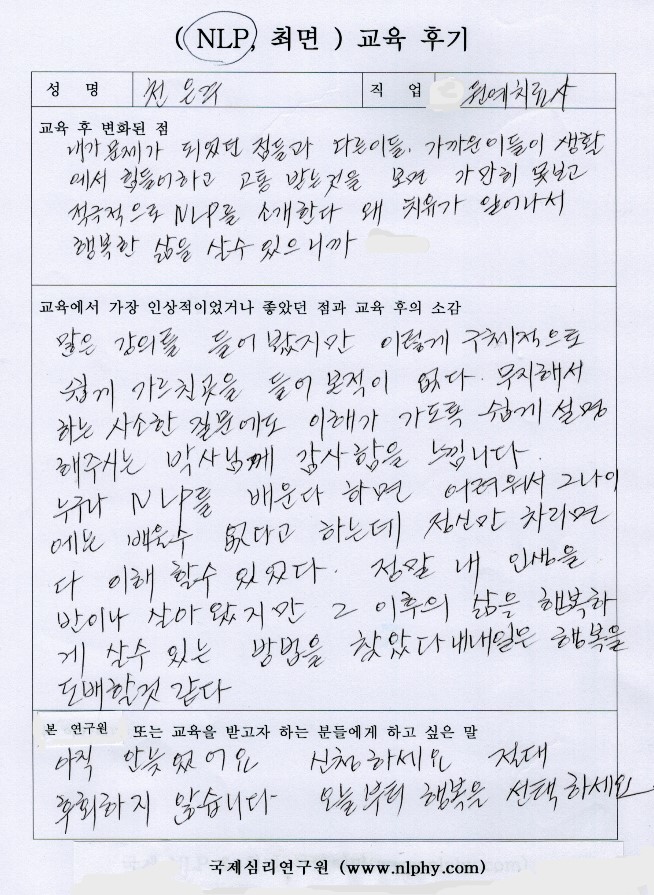 ( NLP, 최면 ) 교육 후기
성 명 천 은 직 업 원예치료사
교육 후 변화된 점
내가 문제가 되었던 점들과 다른이들, 가까운이들이 생활
에서 힘들어하고 고통 받는것을 보면 가만히 못보고
적극적으로 NLP를 소개한다 왜 치유가 일어나서
행복한 삶을 살수 있으니까
교육에서 가장 인상적이었거나 좋았던 점과 교육 후의 소감
많은 강의를 들어 봤지만 이렇게 구체적으로
쉽게 가르친곳을 들어 본적이 없다. 무지해서
하는 사소한 질문에도 이해가 가도록 쉽게 설명
해주시는 박사님께 감사함을 느낍니다.
누구나 NLP를 배운다 하면 어려워서 그나이
에는 배울수 없다고 하는데 정신만 차리면
다 이해 할수 있었다. 정말 내 인생을
반이나 살아 왔지만 그 이후의 삶을 행복하
게 살수 있는 방법을 찾았다 내내일은 행복을
도배할것 같다
본 연구원 또는 교육을 받고자 하는 분들에게 하고 싶은 말
아직 안늦었어요 신청하세요 절대
후회하지 않습니다 오늘부터 행복을 선택하세요
국제심리연구원 (www.nlphy.com)